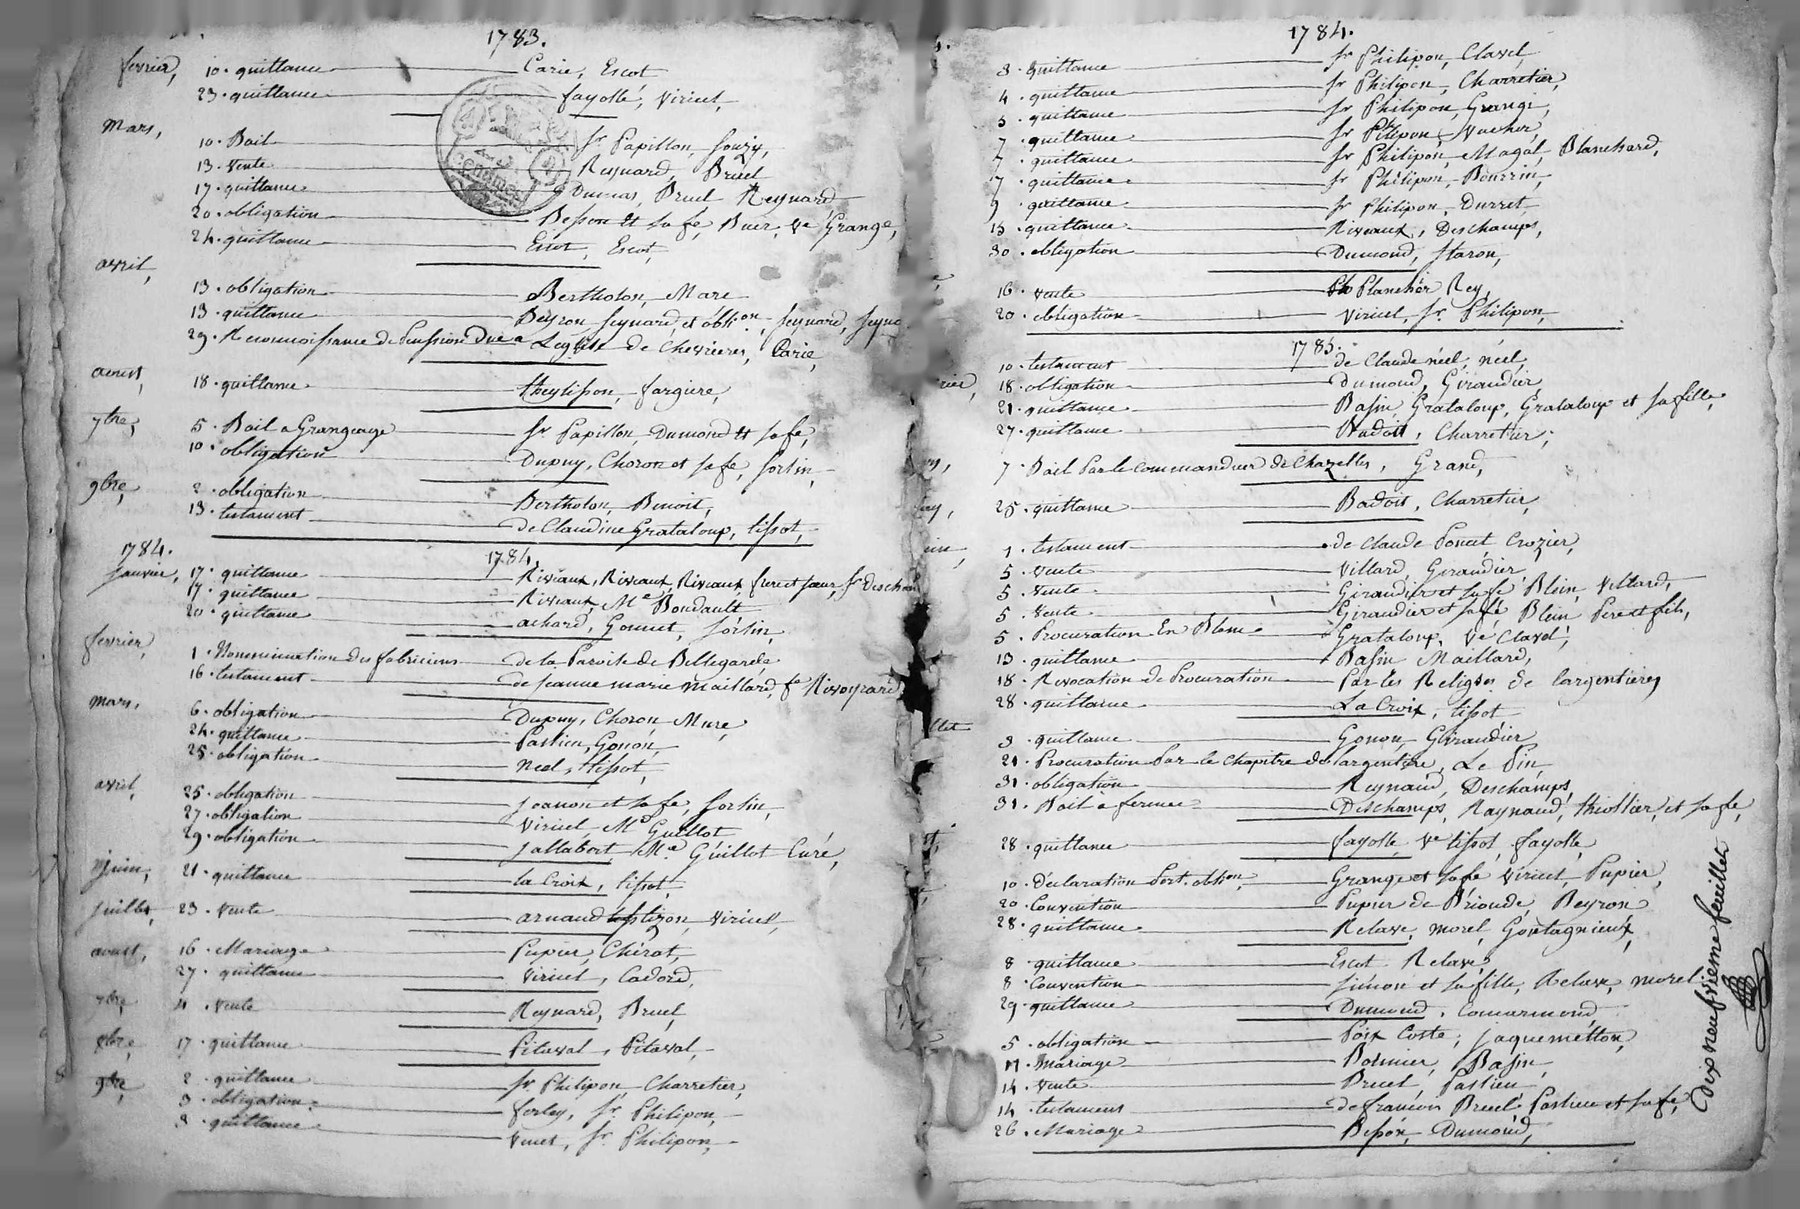 1783.
fevrier, 10. quittance Carie, Escot,
23. quittance fayolle, viricel,
Mars, 10. Bail Sr. Papillon, Souzy,
13. vente Reynard, Bruel
17. quittance Dumas, Bruel Reynard
20. obligation Besson et sa fe, Buer, ve Grange,
24. quittance Escot, Escot,
avril, 13. obligation Bertholon, Mare
13. quittance Beyron, Seynard, et oblion, Seynard,
29. Reconnoissance de Penssion Due a Leglise de Chevrieres, Carie,
aoust, 18. quittance theylisson, fargere,
7bre, 5. Bail a Grangeage Sr. Papillon, Dumond et sa fe,
10. obligation Dupuy, Choron et sa fe, Sortin,
9bre, 2. obligation Bertholon, Benoit,
13. testament de Claudine Grataloup, tissot,
1784. 1784.
Janvier, 17. quittance Riveaux, Riveaux, Riveaux, frere et sœur, Sr
17. quittance Riveaux, Me Boudault
20. quittance achard, Gonnet, Sortin,
fevrier, 1. Nommination des fabriciens de la Paroisse de Bellegarde
16. testament de Jeanne marie Maillard, fe Rivoyrard
Mars, 6. obligation Dupuy, Choron Mure,
24. quittance Pastieu, Gonon,
25. obligation neel, tissot,
avril, 25. obligation Joanon et sa fe, Sortin,
27. obligation Viricel, Me Guillot
29. obligation Jallabert Me. Guillot Curé,
juin, 21. quittance la Croix, tissot
juillet, 23. vente arnaud viricel,
aoust, 16. Mariage Pupier, Chirat,
27. quittance viricel, Cadore,
7bre, 4. vente Reynard, Bruel,
8bre, 17. quittance Pitaval, Pitaval,
9bre, 2. quittance Sr. Philipon, Charretier,
3. obligation ferley, Sr. Philipon,
3. quittance Sr. Philipon,
1784.
3. quittance Sr Philipon, Clavel,
4. quittance Sr Philipon, Charretier,
5. quittance Sr Philipon, Grangé,
7. quittance Sr Philipon, Vacher,
7. quittance Sr Philipon, Magat, Blanchard,
7. quittance Sr Philipon, Bourrin,
9. quittance Sr Philipon, Durret,
15. quittance Riveaux, Deschamps,
30. obligation Dumond, Staron,
16. vente Plancher Rey,
20. obligation viricel, Sr. Philipon,
1785.
10. testament de Claude néel, néel,
18. obligation Dumond, Giraudier
21. quittance Basin, Grataloup, Grataloup et sa fille,
27. quittance Badoit, Charretier,
7. Bail Par le commandeur de Chazelles, Grand,
25. quittance Badoit, Charretier,
1. testament de Claude Poncet, Crozier,
5. vente villard, Giraudier
5. vente Giraudier et sa fe Blein, Villard,
5. vente Giraudier et sa fe, Blein Pere et fils,
5. Procuration En Blanc Grataloup, Ve Clavel,
13. quittance Basin Maillard,
18. Revocation de Procuration Par Les Religses de Largentieres
28. quittance La Croix, tissot
3. quittance Gonon, Giraudier,
21. Procuration Par le chapitre de largentiere, Le Pin
31. obligation Reynaud, Deschamps,
31. Bail a ferme Deschamps, Raynaud, thiollier, et sa fe,
28. quittance fayolle, Ve tissot, fayolle,
10. Déclaration Port. oblion, Grange et sa fe viricel, Pupier,
20. Convention Pupier de Brioude Beyron
28. quittance Relave, morel, Goutagnieux,
8. quittance Escot Relave,
8. Convention Simon et sa fille, Relave, morel
29. quittance Dumond, Comarmond
5. obligation Poix Coste, Jaquemetton,
11. Mariage Bolmier, Basin,
14. vente Bruel, Pastieu
14. testament de francois Bruel, Pastieu et sa fe,
26. Mariage Besson, Dumond,
Dix neufvieme feuillet